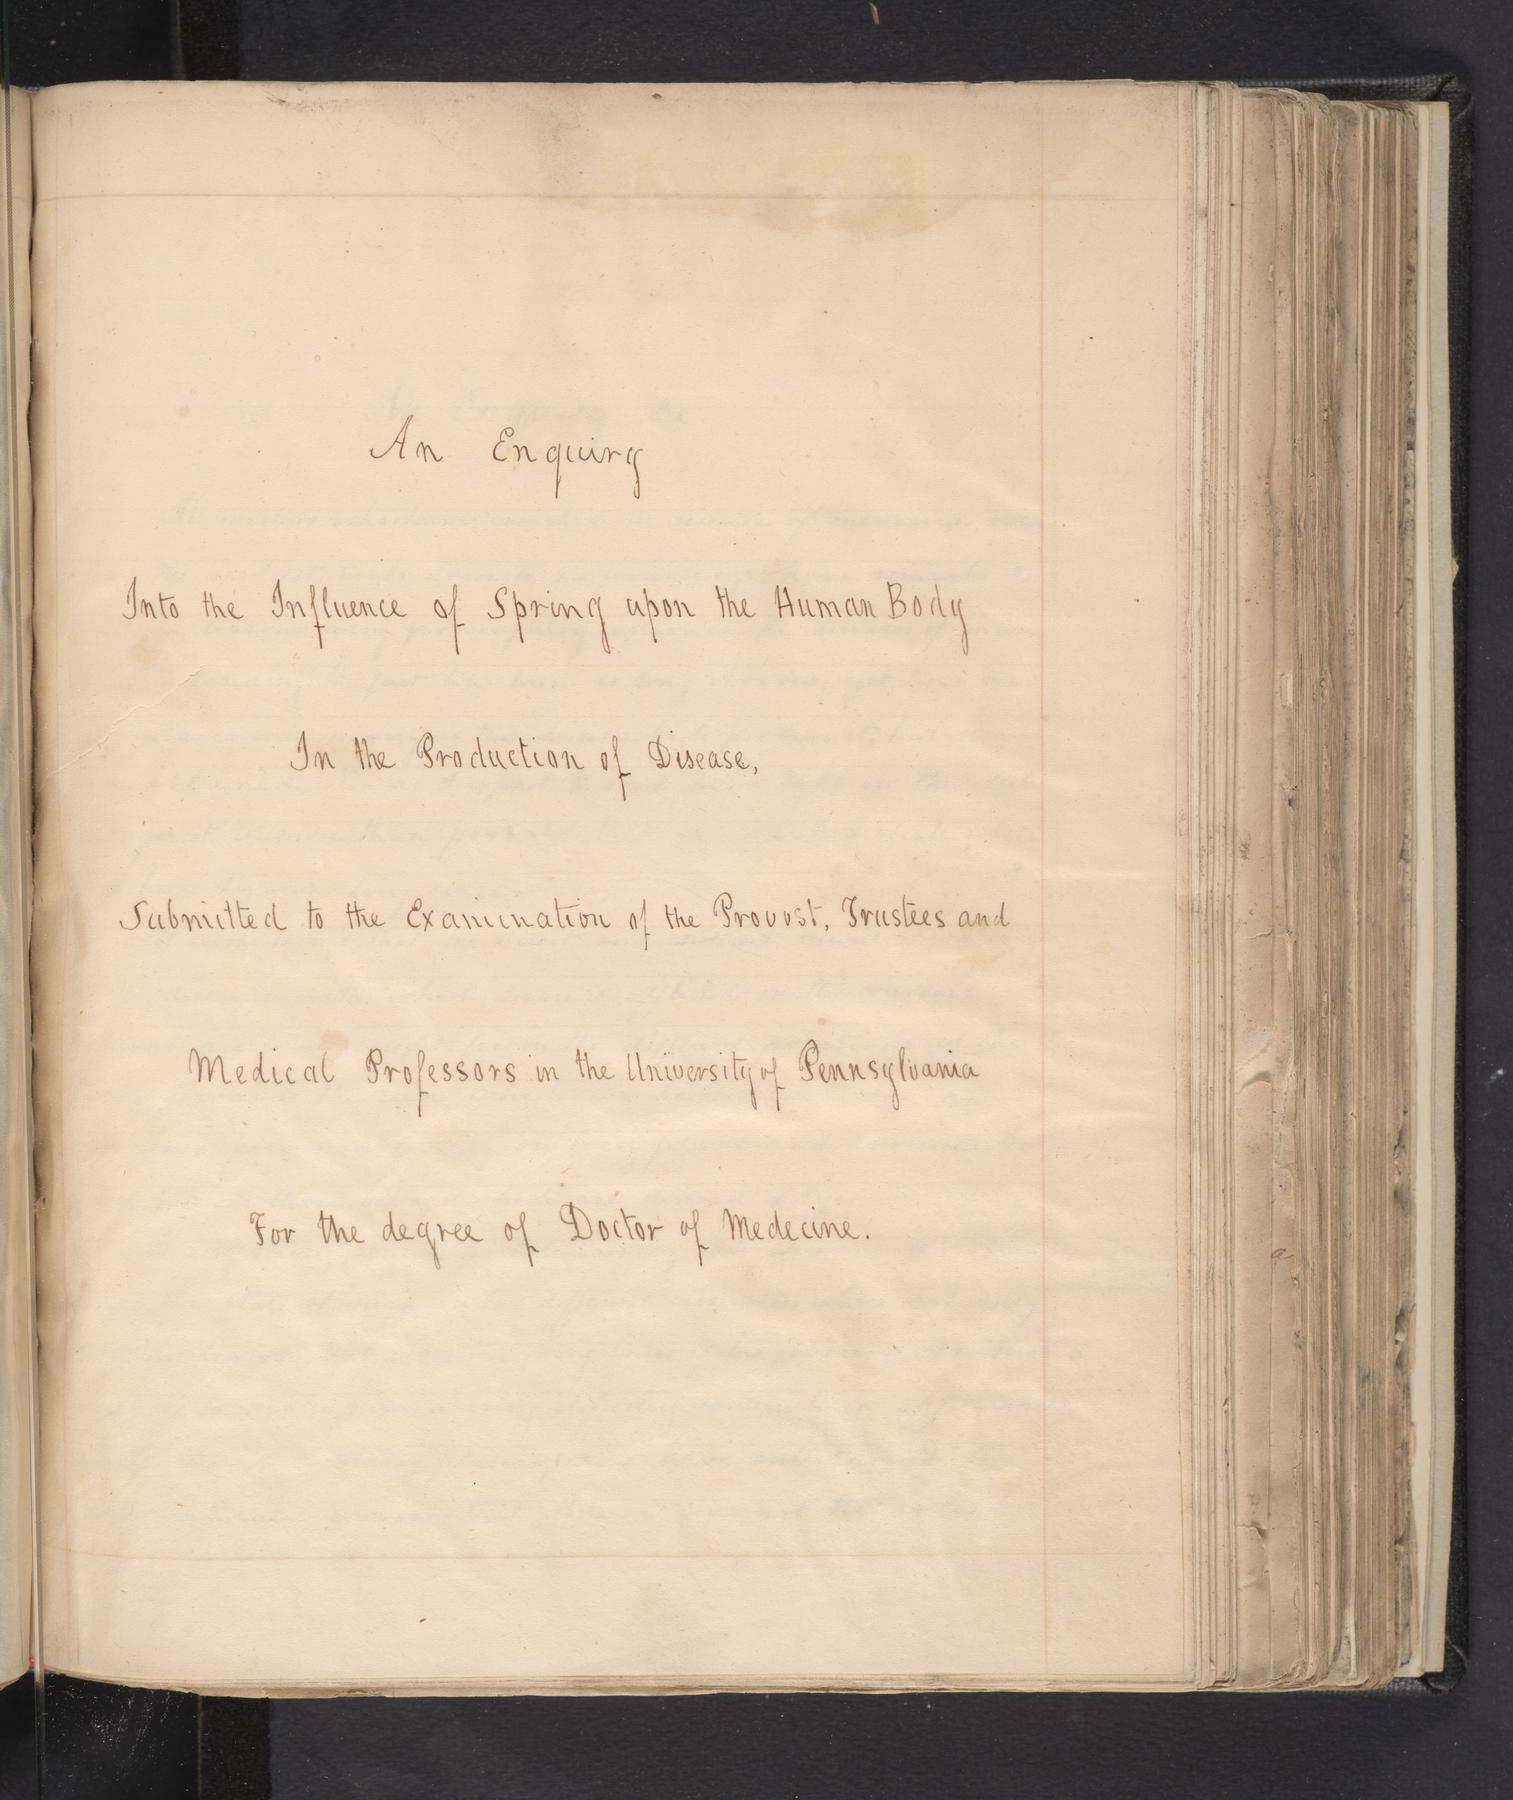 An Enquiry
Into the Influence of Spring upon the Human Body
In the Production of Disease,
Submitted to the Examination of the Provost, Trustees and
Medical Professors in the University of Pennsylvania
For the degree of Doctor of Medecine.